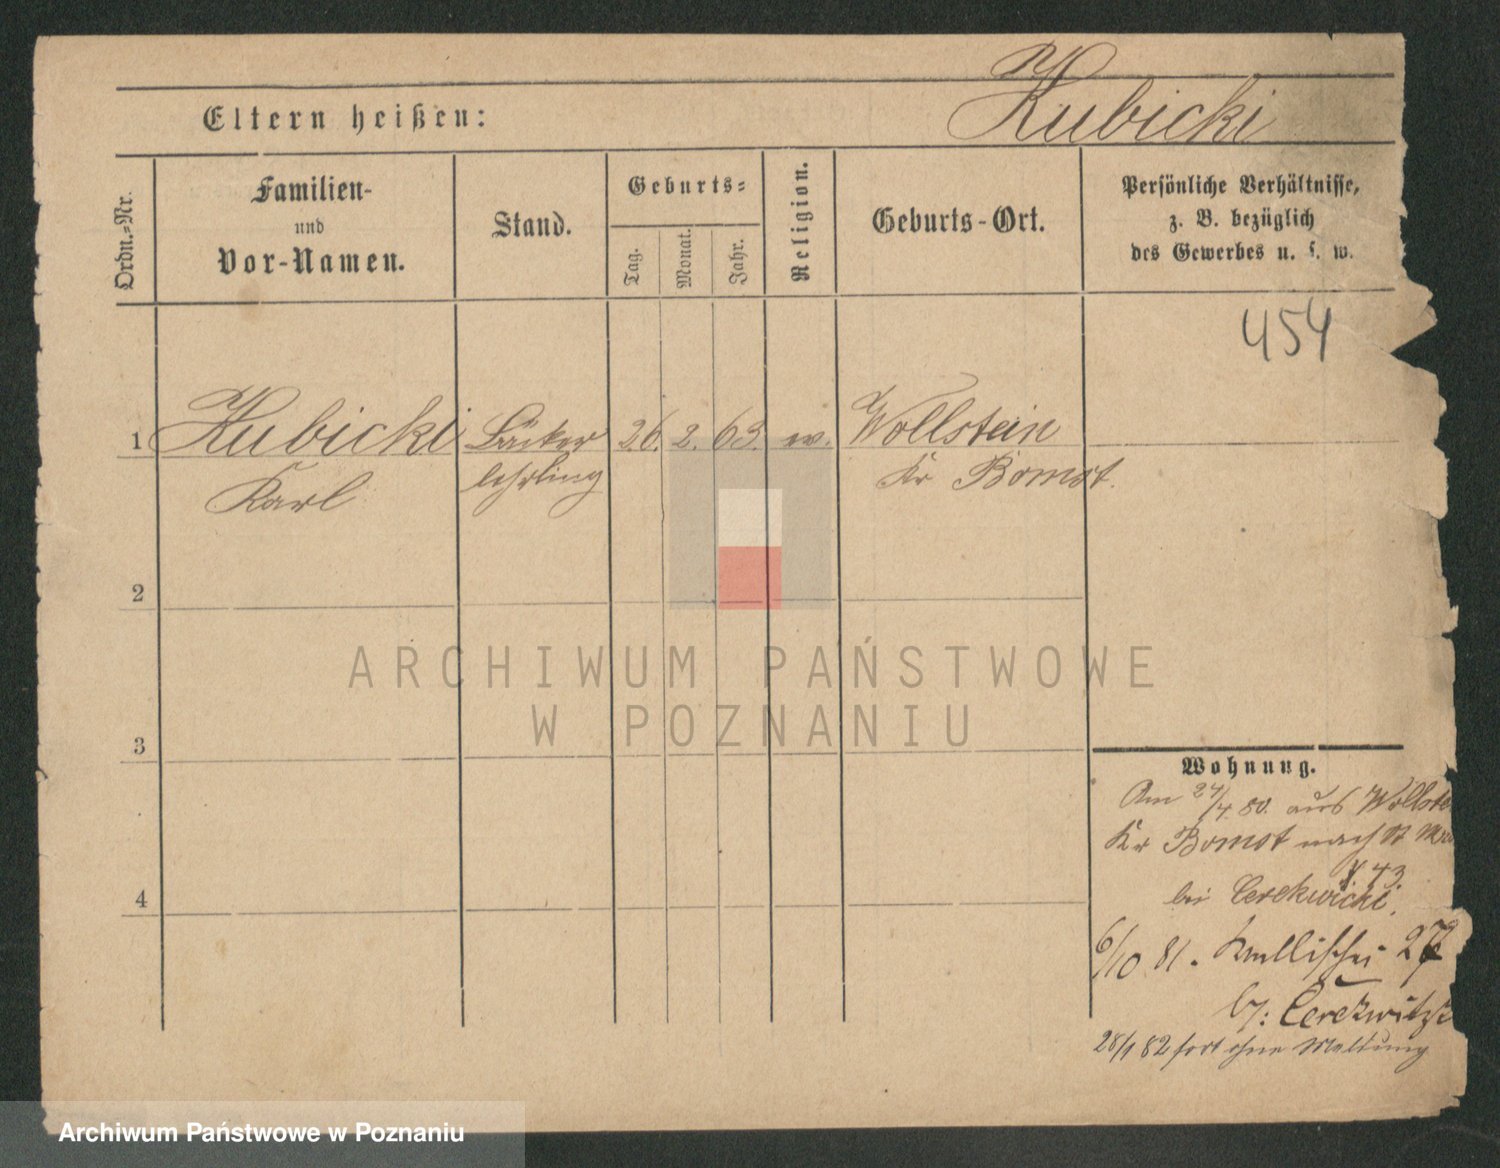 Kubicki
Eltern heißen:
Ordn.-Nr.
Familien-
und
Vor-Namen.
Stand.
Geburts-
Tag.
Monat.
Jahr.
Religion.
Geburts-Ort.
Persönliche Verhältnisse,
z. B. bezüglich
des Gewerbes u. s. w.
454
1 Kubicki Bäcker 26. 2. 63. Wollstein
Karl lehrling Kr Bomst.
2
3
4
Wohnung.
Am 24/4. 80. aus Wollste
Kr Bomst nach St
43
bei Cerekwicki.
6/10 81. 27
Cerekwitzk
28/1 82 fort ohne Meldung
ARCHIWUM PAŃSTWOWE
W POZNANIU
Archiwum Państwowe w Poznaniu